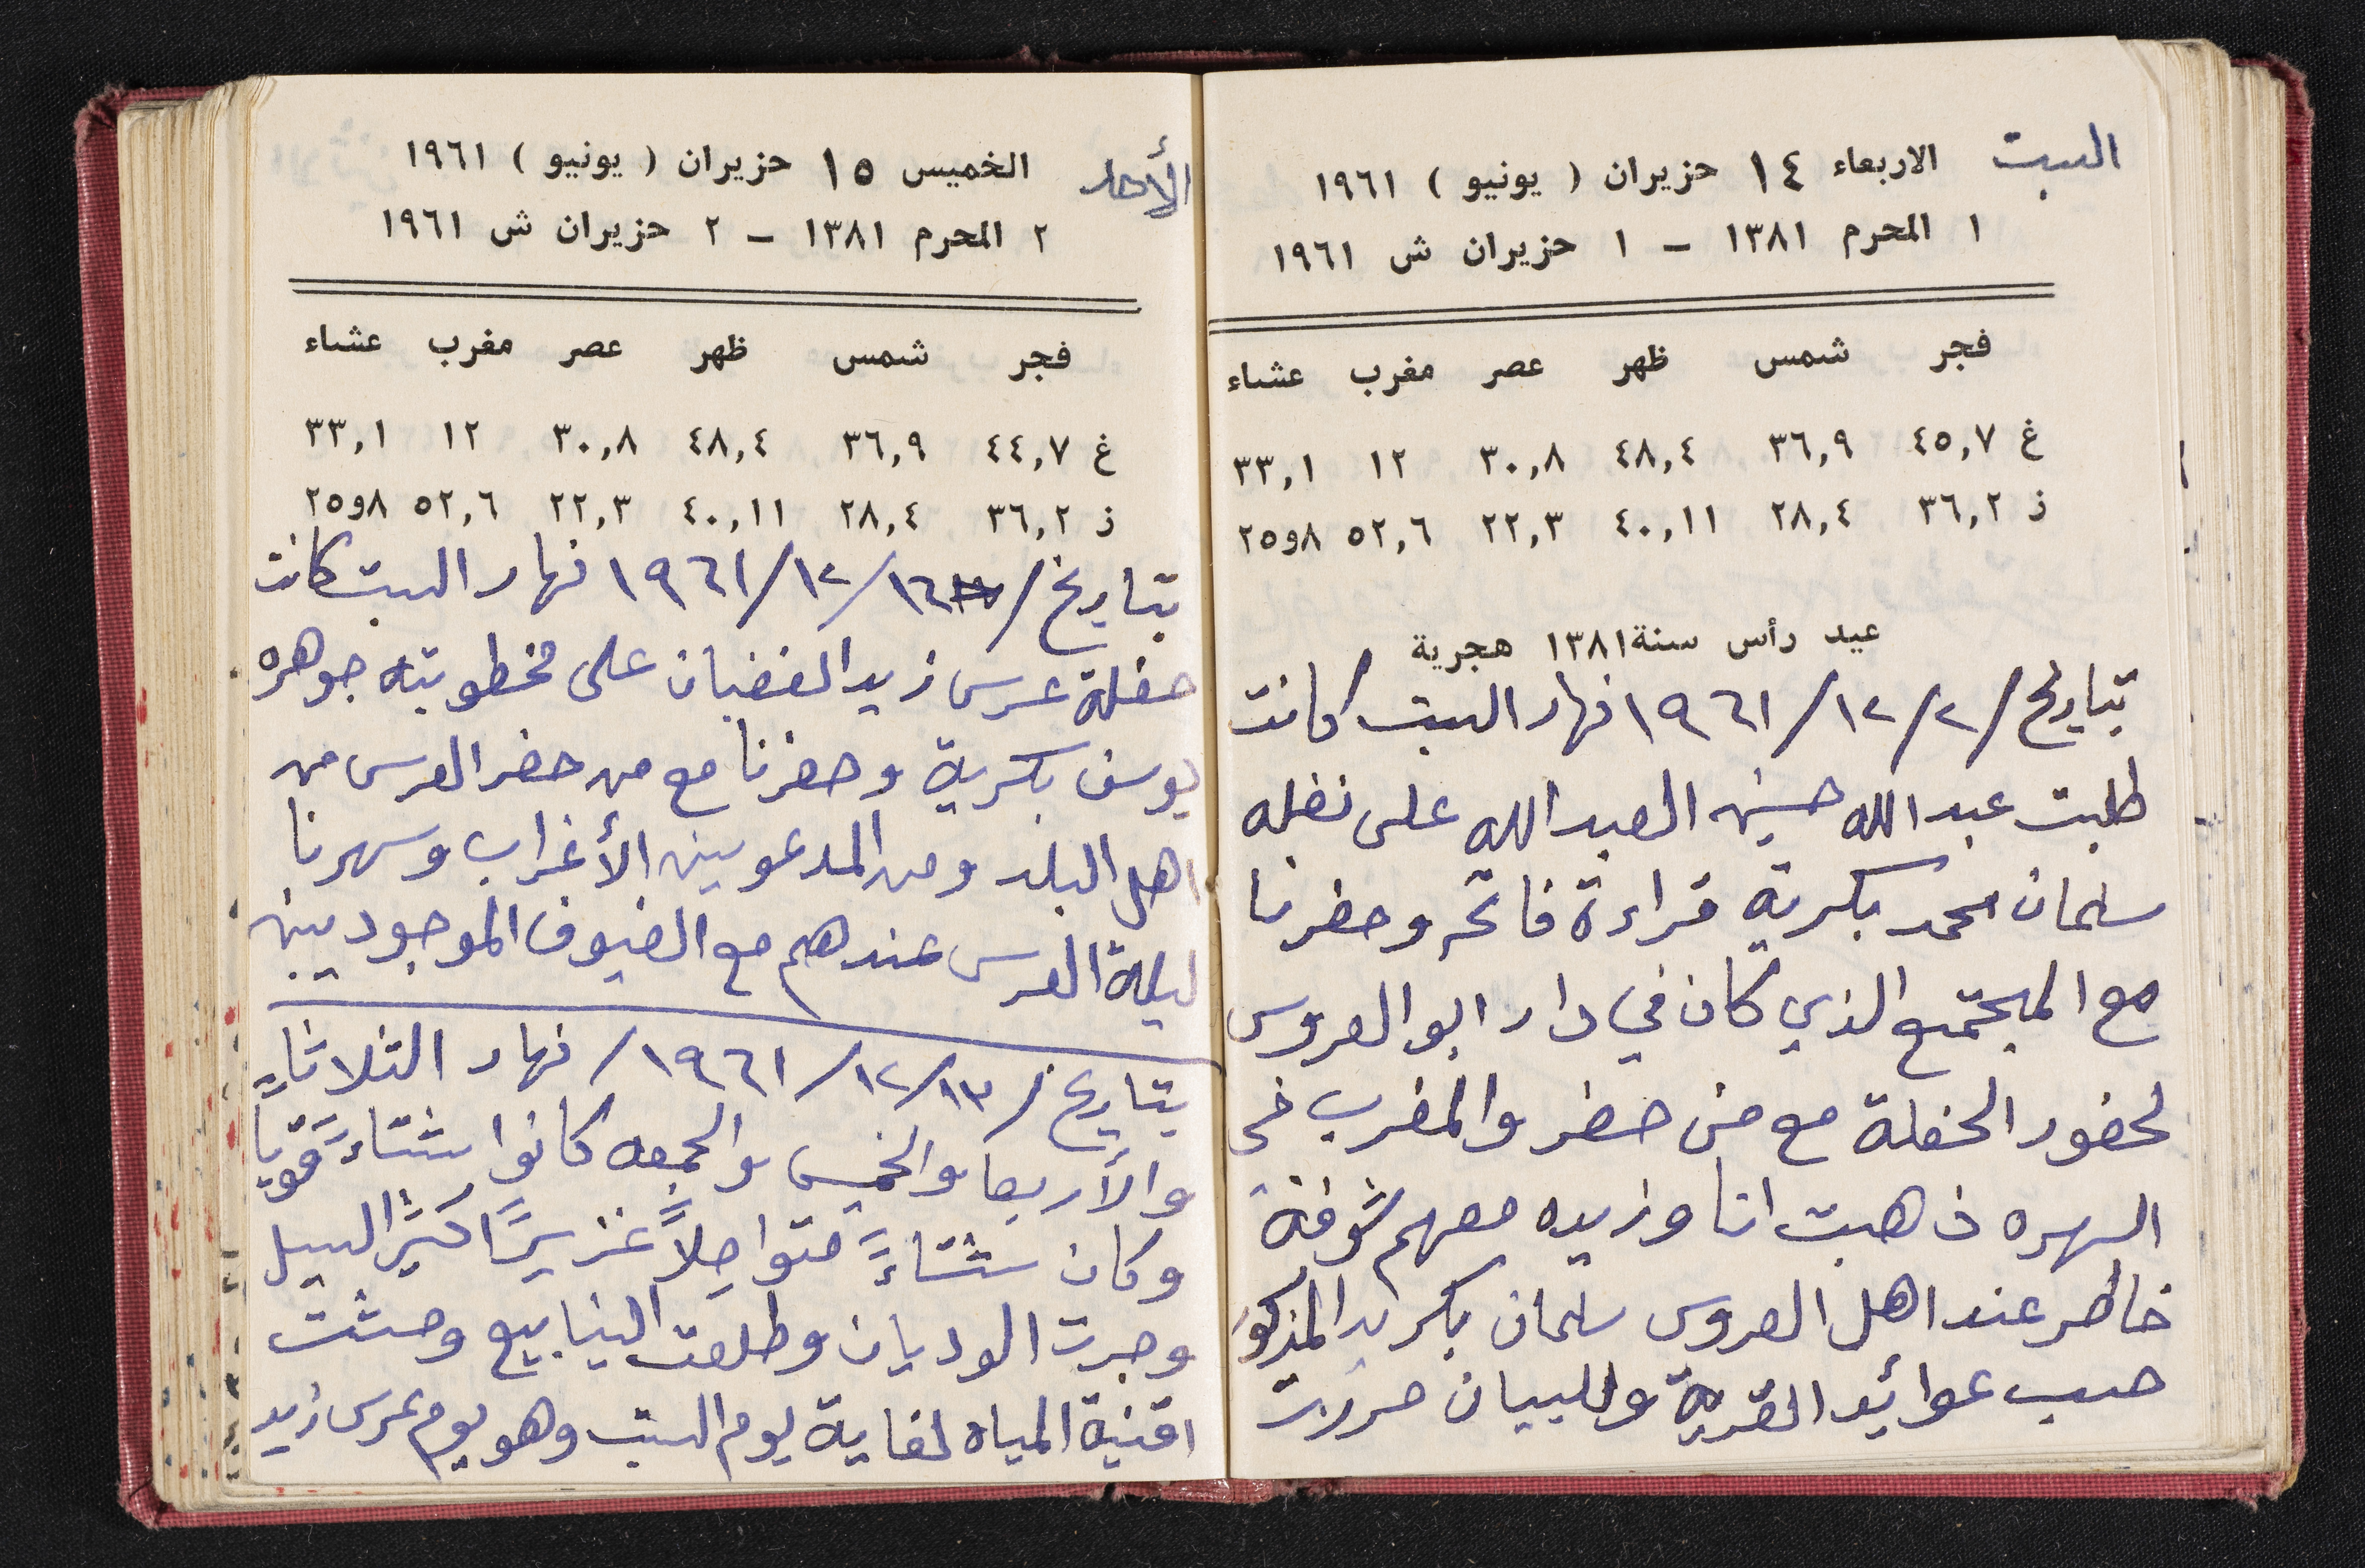 السبت
الاربعاء ١٤ حزيران ( يونيو ) ١٩٦١
١ المحرم ١٣٨١ – ١ حزيران ش ١٩٦١
فجر شمس ظهر عصر مغرب عشاء
غ ٤٥,٧ ٣٦,٩ ٤٨,٤ ٣٠,٨ ١٢ ٣٣,١
ز ٣٦,٢ ٢٨,٤ ٤٠,١١ ٢٢,٣ ٥٢,٦ ٨و٢٥
عيد رأس سنة ١٣٨١ هجرية
بتاريخ / ٢ / ١٢ / ١٩٦١ نهار السبت كانت
طلبت عبدالله حسين العبدالله على نفله
سلمان محمد بكرية قراءة فاتحه وحضرنا
مع المجتمع الذي كان في دار ابو العروس
لحضور الحفلة مع من حضر والمغرب في
السهره ذهبت انا وزيده معهم شوفة
خاطر عند اهل العروس سلمان بكريه المذكور
حسب عوائد القرية وللبيان حررت
الأحد
الخميس ١٥ حزيران ( يونيو ) ١٩٦١
٢ المحرم ١٣٨١ – ٢ حزيران ش ١٩٦١
فجر شمس ظهر عصر مغرب عشاء
غ ٤٤,٧ ٣٦,٩ ٤٨,٤ ٣٠,٨ ١٢ ٣٣,١
ز ٣٦,٢ ٢٨,٤ ٤٠,١١ ٢٢,٣ ٥٢,٦ ٨و٢٥
بتاريخ / ١٦ / ١٢ / ١٩٦١ نهار السبت كانت
حفلة عرس زيد الغضبان على مخطوبته جوهره
يوسف بكرية وحضرنا مع من حضر العرس من
اهل البلد ومن المدعوين الأغراب وسهرنا
ليلة العرس عندهم مع الضيوف الموجودين
بتاريخ / ١٣ / ١٢ / ١٩٦١ / نهار الثلاثاءً
والأربعا والخميس والجمعه كانوا شتاءً قويا
وكان شتاءً متواصِلاً غزيرًا كثير السيل
وجرت الوديان وطلعت الينابيع ومشت
اقنية المياه لغاية يوم السبت وهو يوم عرس زيد